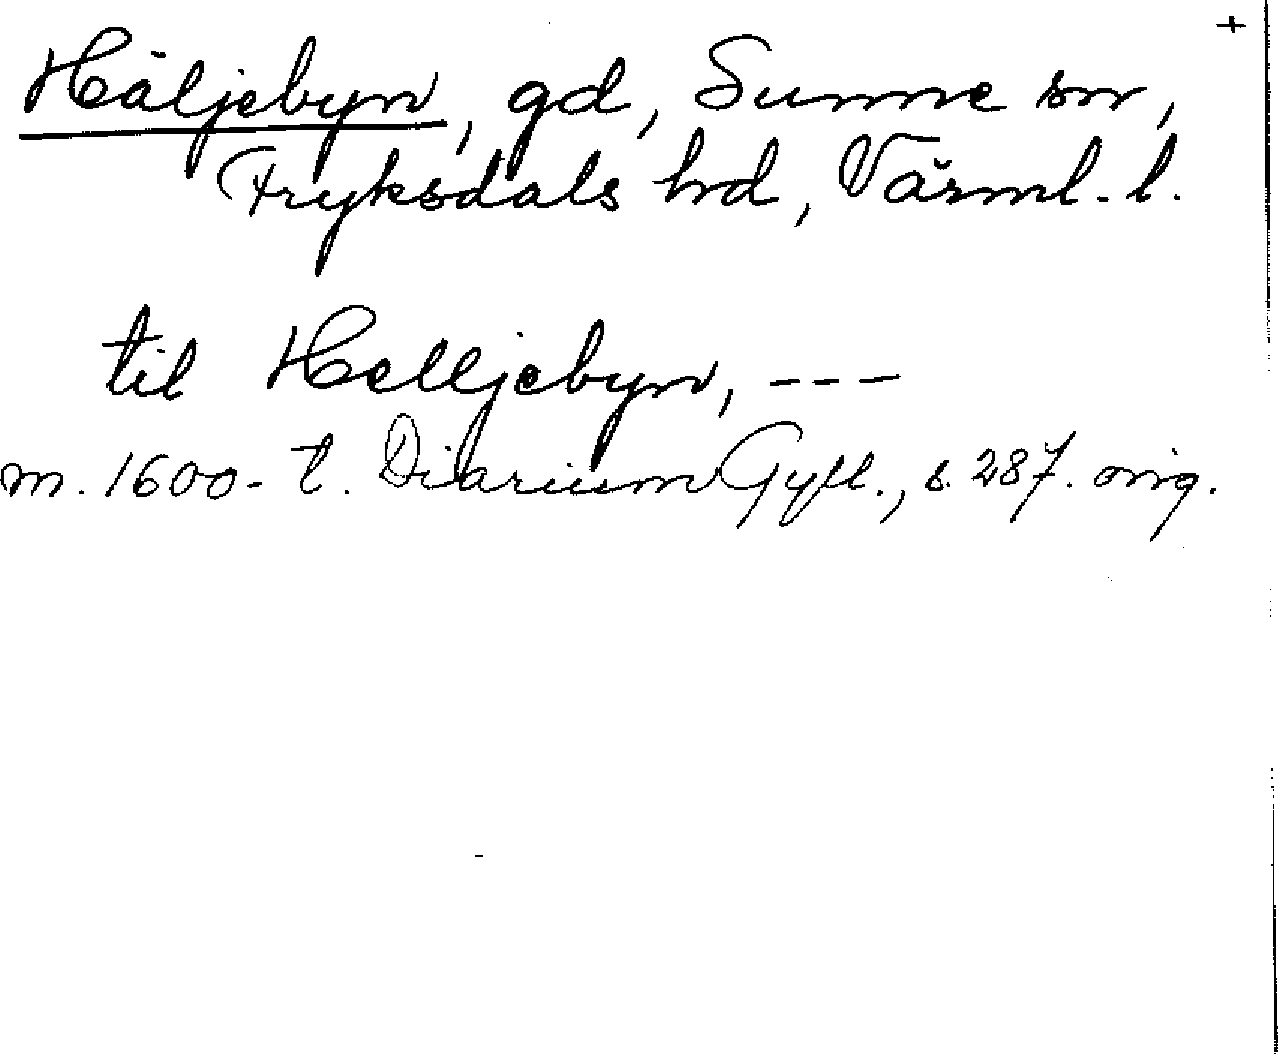 +
Häljebyn, gd, Sunne sn,
Fryksdals hd, Värml. l.
til Helljebyn, ---
m. 1600-t. Diarium Gyll., s. 287. orig.